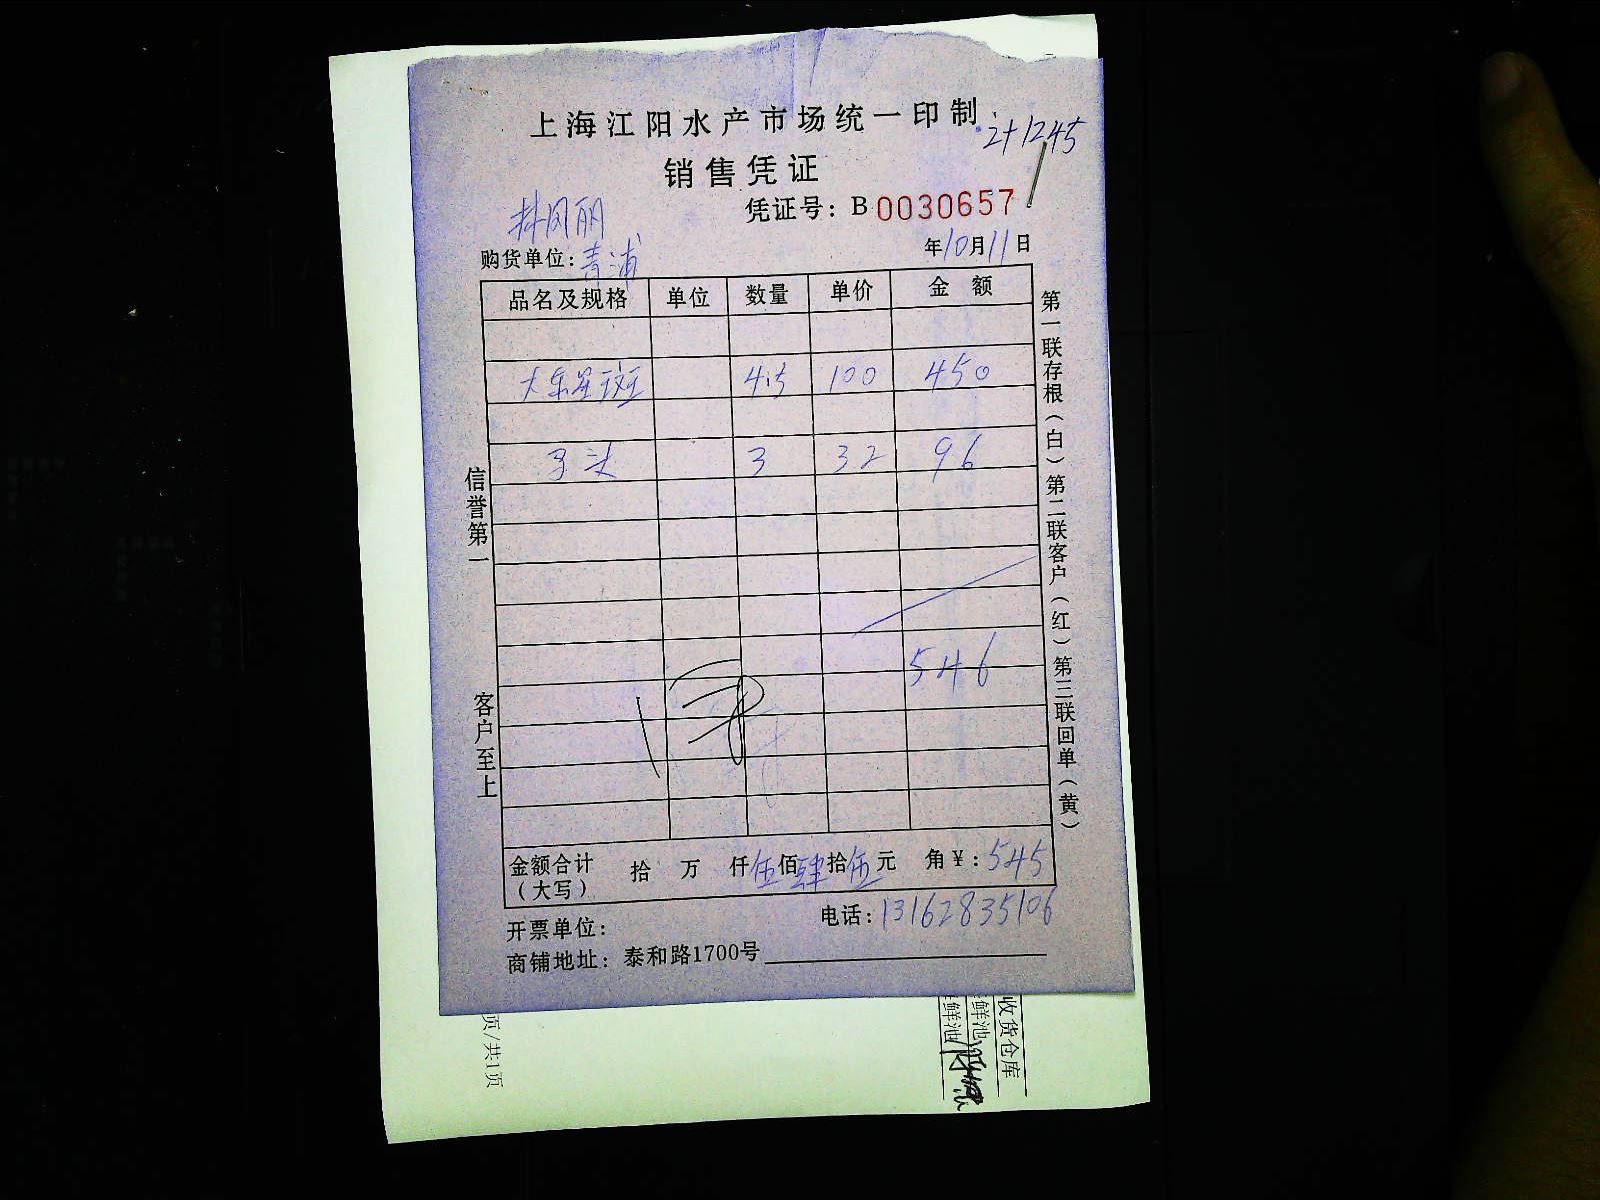 上海江阳水产市场统一印制
2+1245
销售凭证
凭证号：B 0030657
购货单位：青浦
年10月11日
品名及规格 单位 数量 单价 金额
大东星斑 4.5 100 450
3 32 96
546
金额合计（大写） 拾 万 仟伍佰肆拾伍元 角￥：545
开票单位：
电话：13162835106
商铺地址：泰和路1700号
信誉第一
客户至上
第一联存根（白）第二联客户（红）第三联回单（黄）
收货仓库
鲜池
鲜池
页/共1页